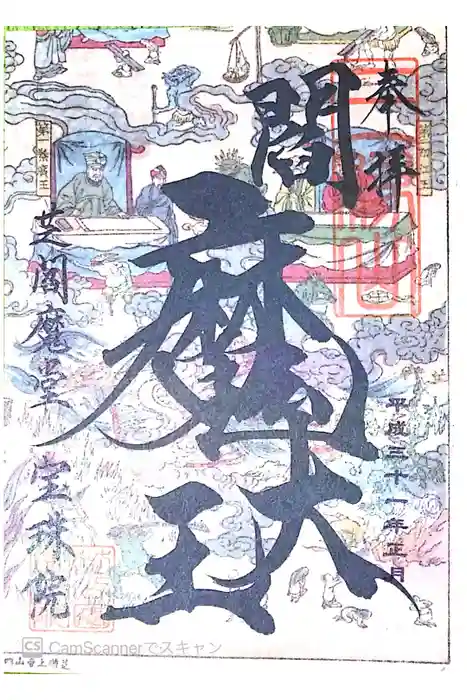 奉拝
閻魔大王
平成三十一年正月
芝閻魔堂 宝珠院
CS CamScannerでスキャン